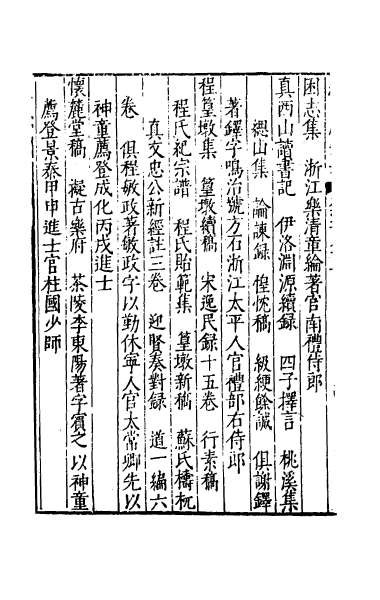 困志集　浙江樂清章綸著官南禮侍郎
真西山讀書記　伊洛淵源續録　四子擇言　桃溪集
緦山集　論諫録　惶忱稿　級綆餘誠　俱謝鐸
著鐸字鳴治號方石浙江太平人官禮部右侍郎
程篁墩集　篁墩續稿　宋逸民録十五卷　行素稿
程氏紀宗譜　程氏貽範集　篁墩新稿　蘇氏檮杌
真文忠公新經註三卷　迎賢奏對録　道一編六
卷　俱程敏政著敏政字以勤休寧人官太常卿先以
神童薦登成化丙戌進士
懷麓堂稿　擬古樂府　茶陵李東陽著字賓之以神童
薦登景泰甲申進士官柱國少師